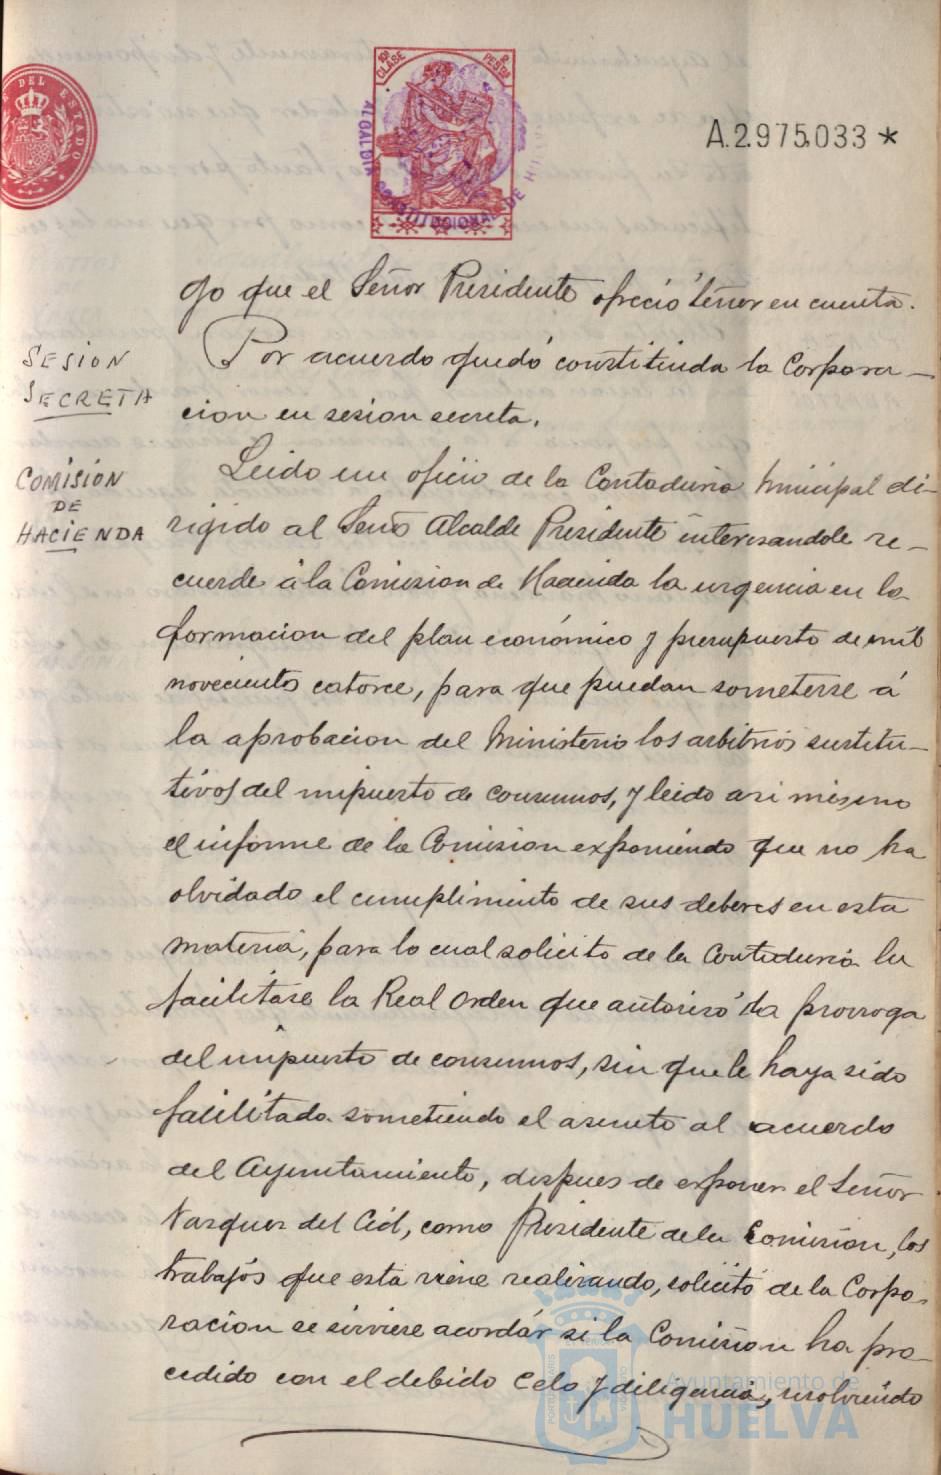 DEL ESTADO
10ª CLASE
2 PESTAS
ALCALDIA CONSTITUCIONAL DE HUELVA
A.2.975.033 *
go que el Señor Presidente ofreció tener en cuenta.
SESION SECRETA
Por acuerdo quedó constituida la Corpora-
cion en sesion secreta.
COMISION DE HACIENDA
Leido un oficio de la Contaduria Municipal di-
rigido al Señor Alcalde Presidente interesandole re-
cuerde á la Comision de Hacienda la urgencia en la
formacion del plan económico y presupuesto de mil
novecientos catorce, para que puedan someterse á
la aprobacion del Ministerio los arbitrios sustitu-
tivos del impuesto de consumos, y leido asi mismo
el informe de la Comision exponiendo que no ha
olvidado el cumplimiento de sus deberes en esta
materia, para lo cual solicito de la Contaduria le
facilitase la Real Orden que autorizó la prorroga
del impuesto de consumos, sin que le haya sido
facilitada sometiendo el asunto al acuerdo
del Ayuntamiento, despues de exponer el Señor
Vazquez del Cid, como Presidente de la Comision, los
trabajos que esta viene realizando, solicitó de la Corpo-
racion se sirviese acordar si la Comision ha pro-
cedido con el debido celo y diligencia, resolviendo
Ayuntamiento de
HUELVA